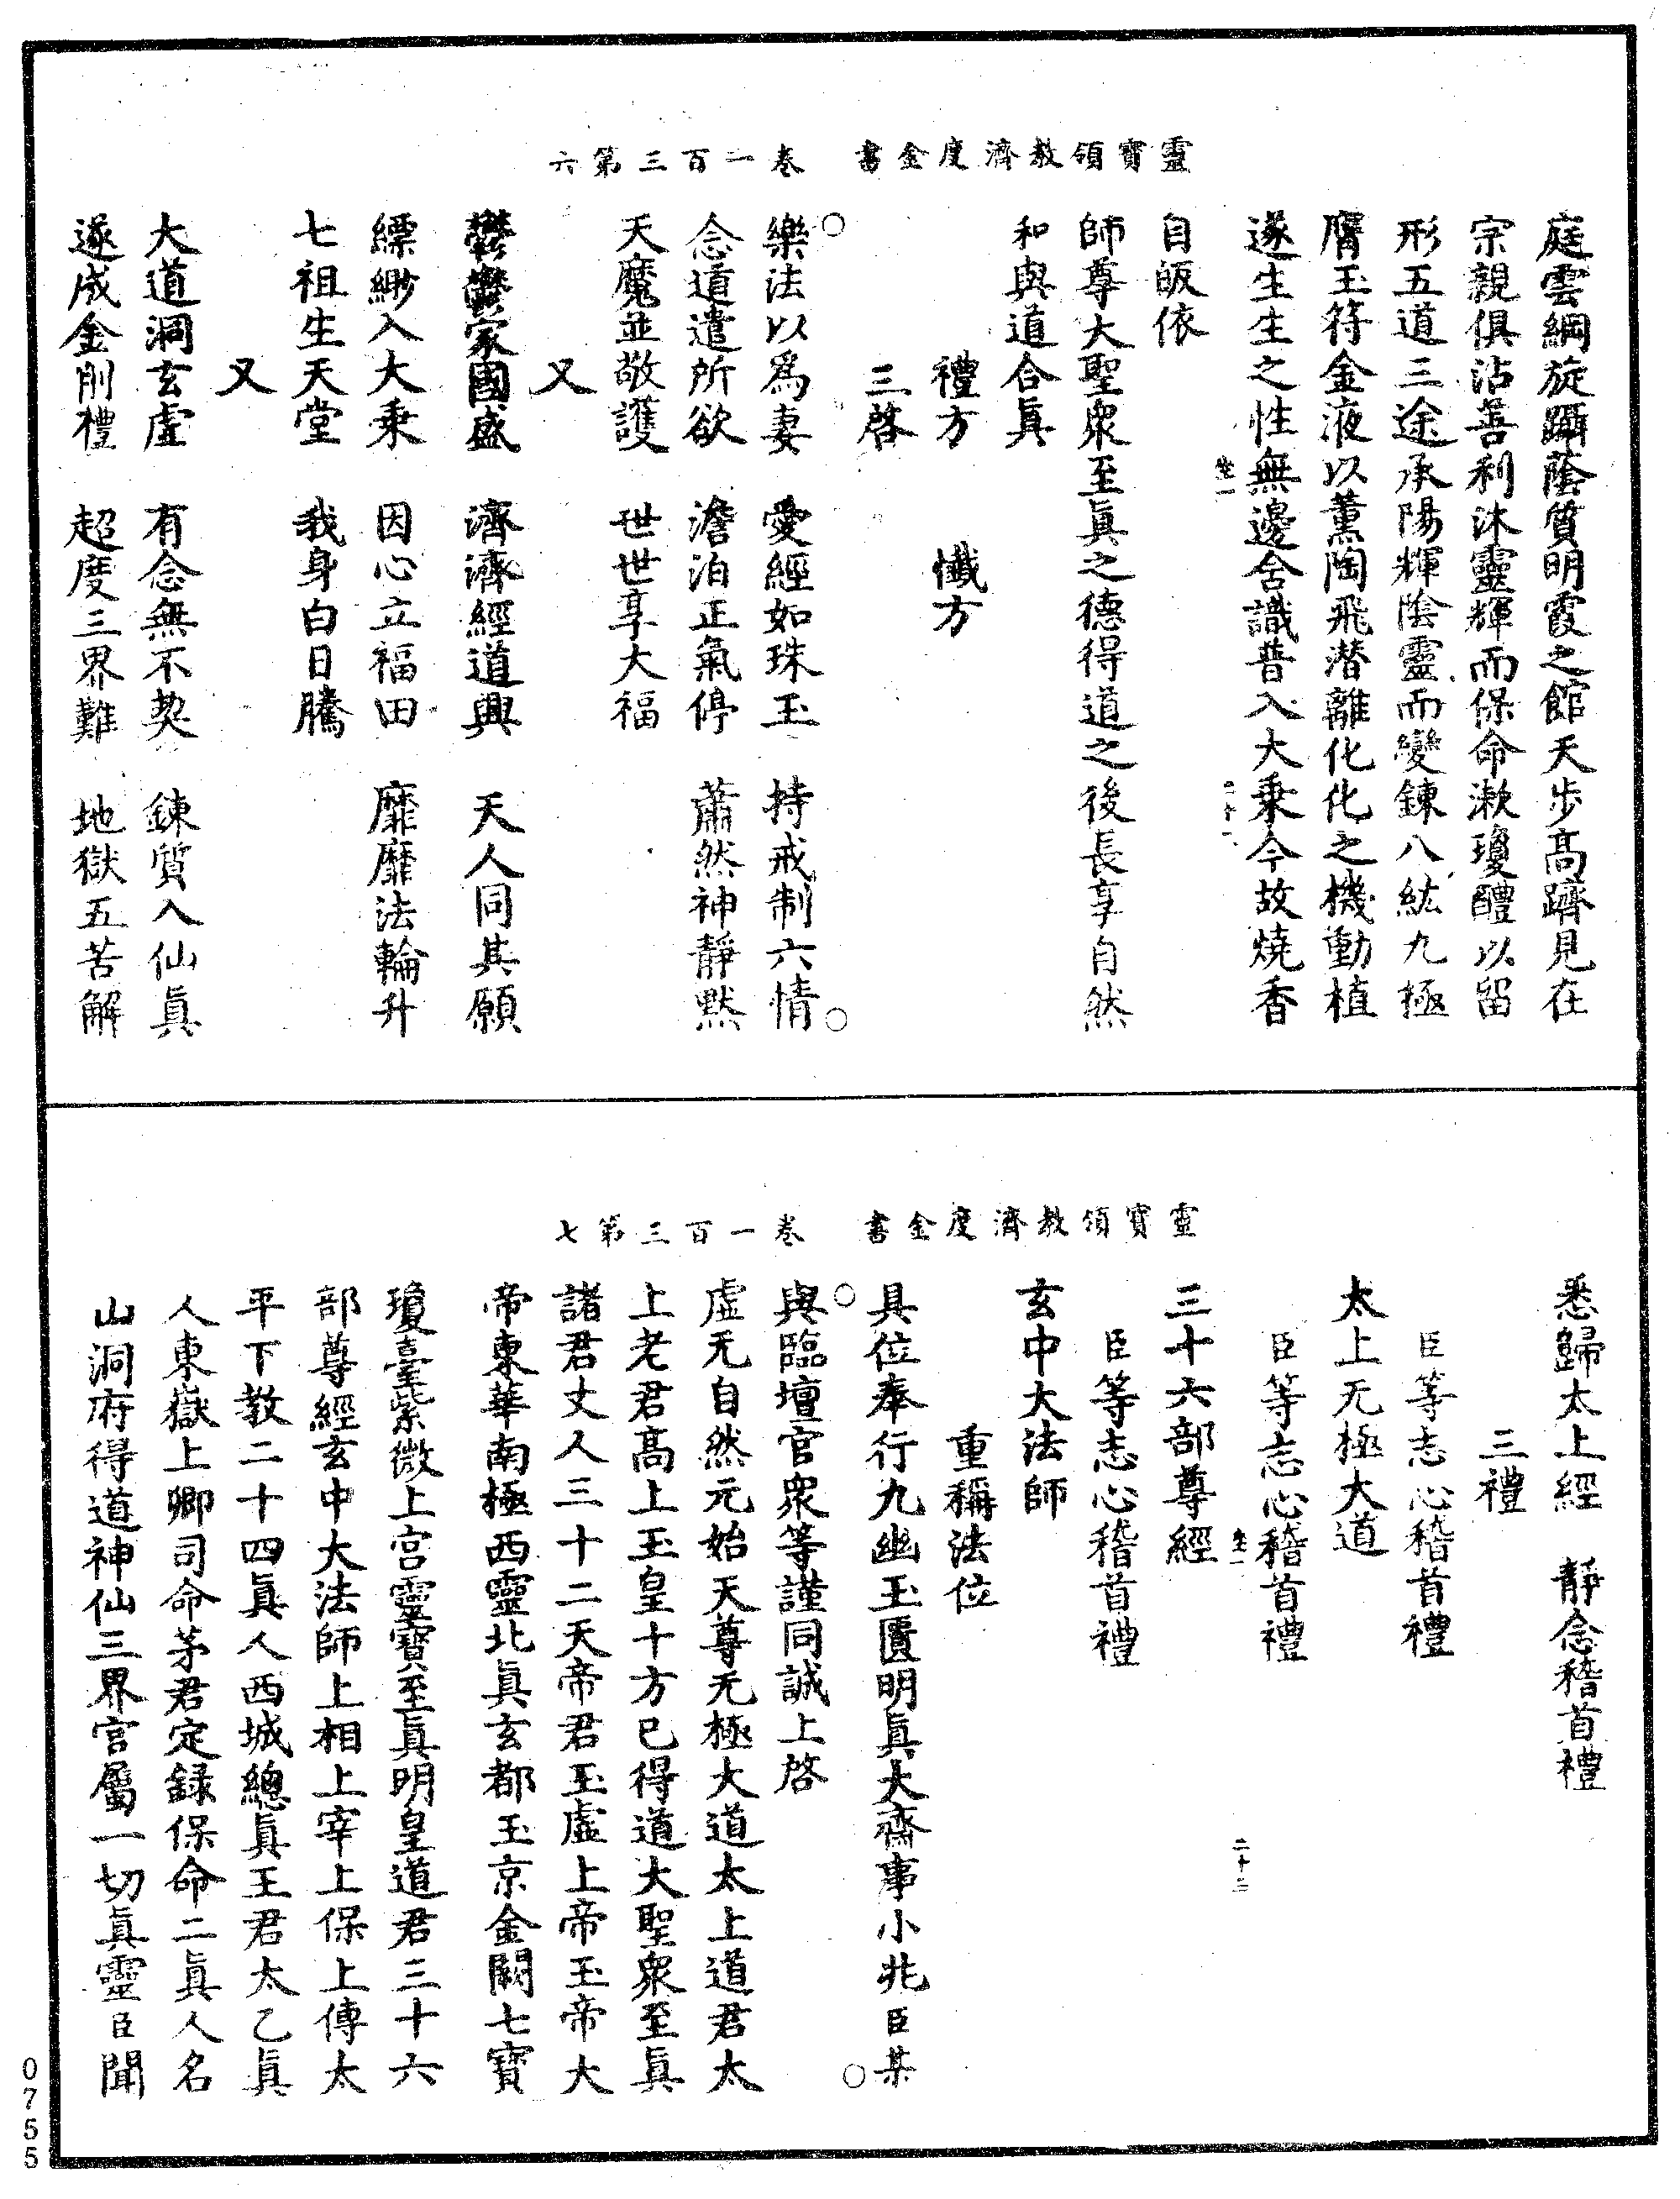 靈寶領教濟度金書　卷一百三第六
庭雲綱旋躡蔭質明霞之館天步高躋見在
宗親俱沾善利沐靈輝而保命漱瓊醴以留
形五道三途承陽輝陰靈而變鍊八紘九極
膺玉符金液以薰陶飛潛離化化之機動植
遂生生之性無邊含識普入大乘今故燒香
自皈依
師尊大聖衆至眞之德得道之後長享自然
和與道合眞
禮方　懺方
三啓
樂法以爲妻　愛經如珠玉　持戒制六情
念道遣所欲　澹泊正氣停　蕭然神靜默
天魔並敬護　世世享大福
又
鬱鬱家國盛　濟濟經道興　天人同其願
縹緲入大乘　因心立福田　靡靡法輪升
七祖生天堂　我身白日騰
又
大道洞玄虛　有念無不契　鍊質入仙眞
遂成金剛禮　超度三界難　地獄五苦解
靈寶領教濟度金書　卷一百三第七
悉歸太上經　靜念稽首禮
三禮
臣等志心稽首禮
太上无極大道
臣等志心稽首禮
三十六部尊經
臣等志心稽首禮
玄中大法師
重稱法位
具位奉行九幽玉匱明眞大齋事小兆臣某
與臨壇官衆等謹同誠上啓
虛无自然元始天尊无極大道太上道君太
上老君高上玉皇十方已得道大聖衆至眞
諸君丈人三十二天帝君玉虛上帝玉帝大
帝東華南極西靈北眞玄都玉京金闕七寶
瓊臺紫微上宮靈寶至眞明皇道君三十六
部尊經玄中大法師上相上宰上保上傅太
平下教二十四眞人西城總眞王君太乙眞
人東嶽上卿司命茅君定録保命二眞人名
山洞府得道神仙三界官屬一切眞靈臣聞
0755